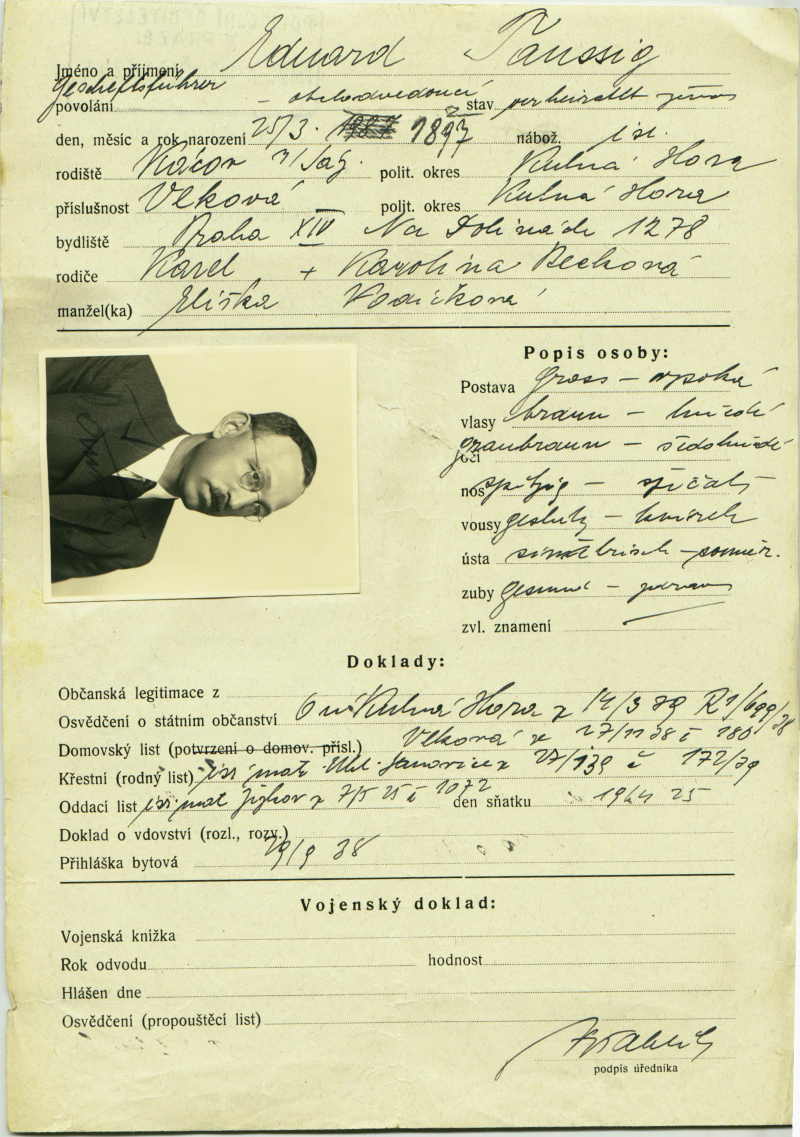 Jméno a příjmení Eduard Taussig
Geschäftsführer
povolání - obchodvedoucí stav verheiratet
den, měsíc a rok narození 25/3. 1897 nábož. isr.
rodiště Kácov n/Sáz. polit. okres Kutná Hora
příslušnost Vlková polit. okres Kutná Hora
bydliště Praha XIV Na Dolinách 1278
rodiče Karel + Karolina Becková
manžel(ka) Eliška Vodičková
Popis osoby:
Postava gross - vysoká
vlasy braun - hnědé
oči graubraun - šedohnědé
nos spitzig - špičatý
vousy gestutzt - knírek
ústa - souměr.
zuby gesund - zdravé
zvl. znamení
Doklady:
Občanská legitimace z
Osvědčení o státním občanství Kutná Hora z 14/3 39
Domovský list (potvrzení o domov. přísl.) Vlková z 27/11 38 č 180
Křestní (rodný list) isr. mat. Uhl. Janovice z č 172/39
Oddací list isr mat Žižkov z 7/5 25 č 1072 den sňatku
Doklad o vdovství (rozl., rozv.)
Přihláška bytová 29/9 38
Vojenský doklad:
Vojenská knížka
Rok odvodu hodnost
Hlášen dne
Osvědčení (propouštěcí list)
podpis úředníka